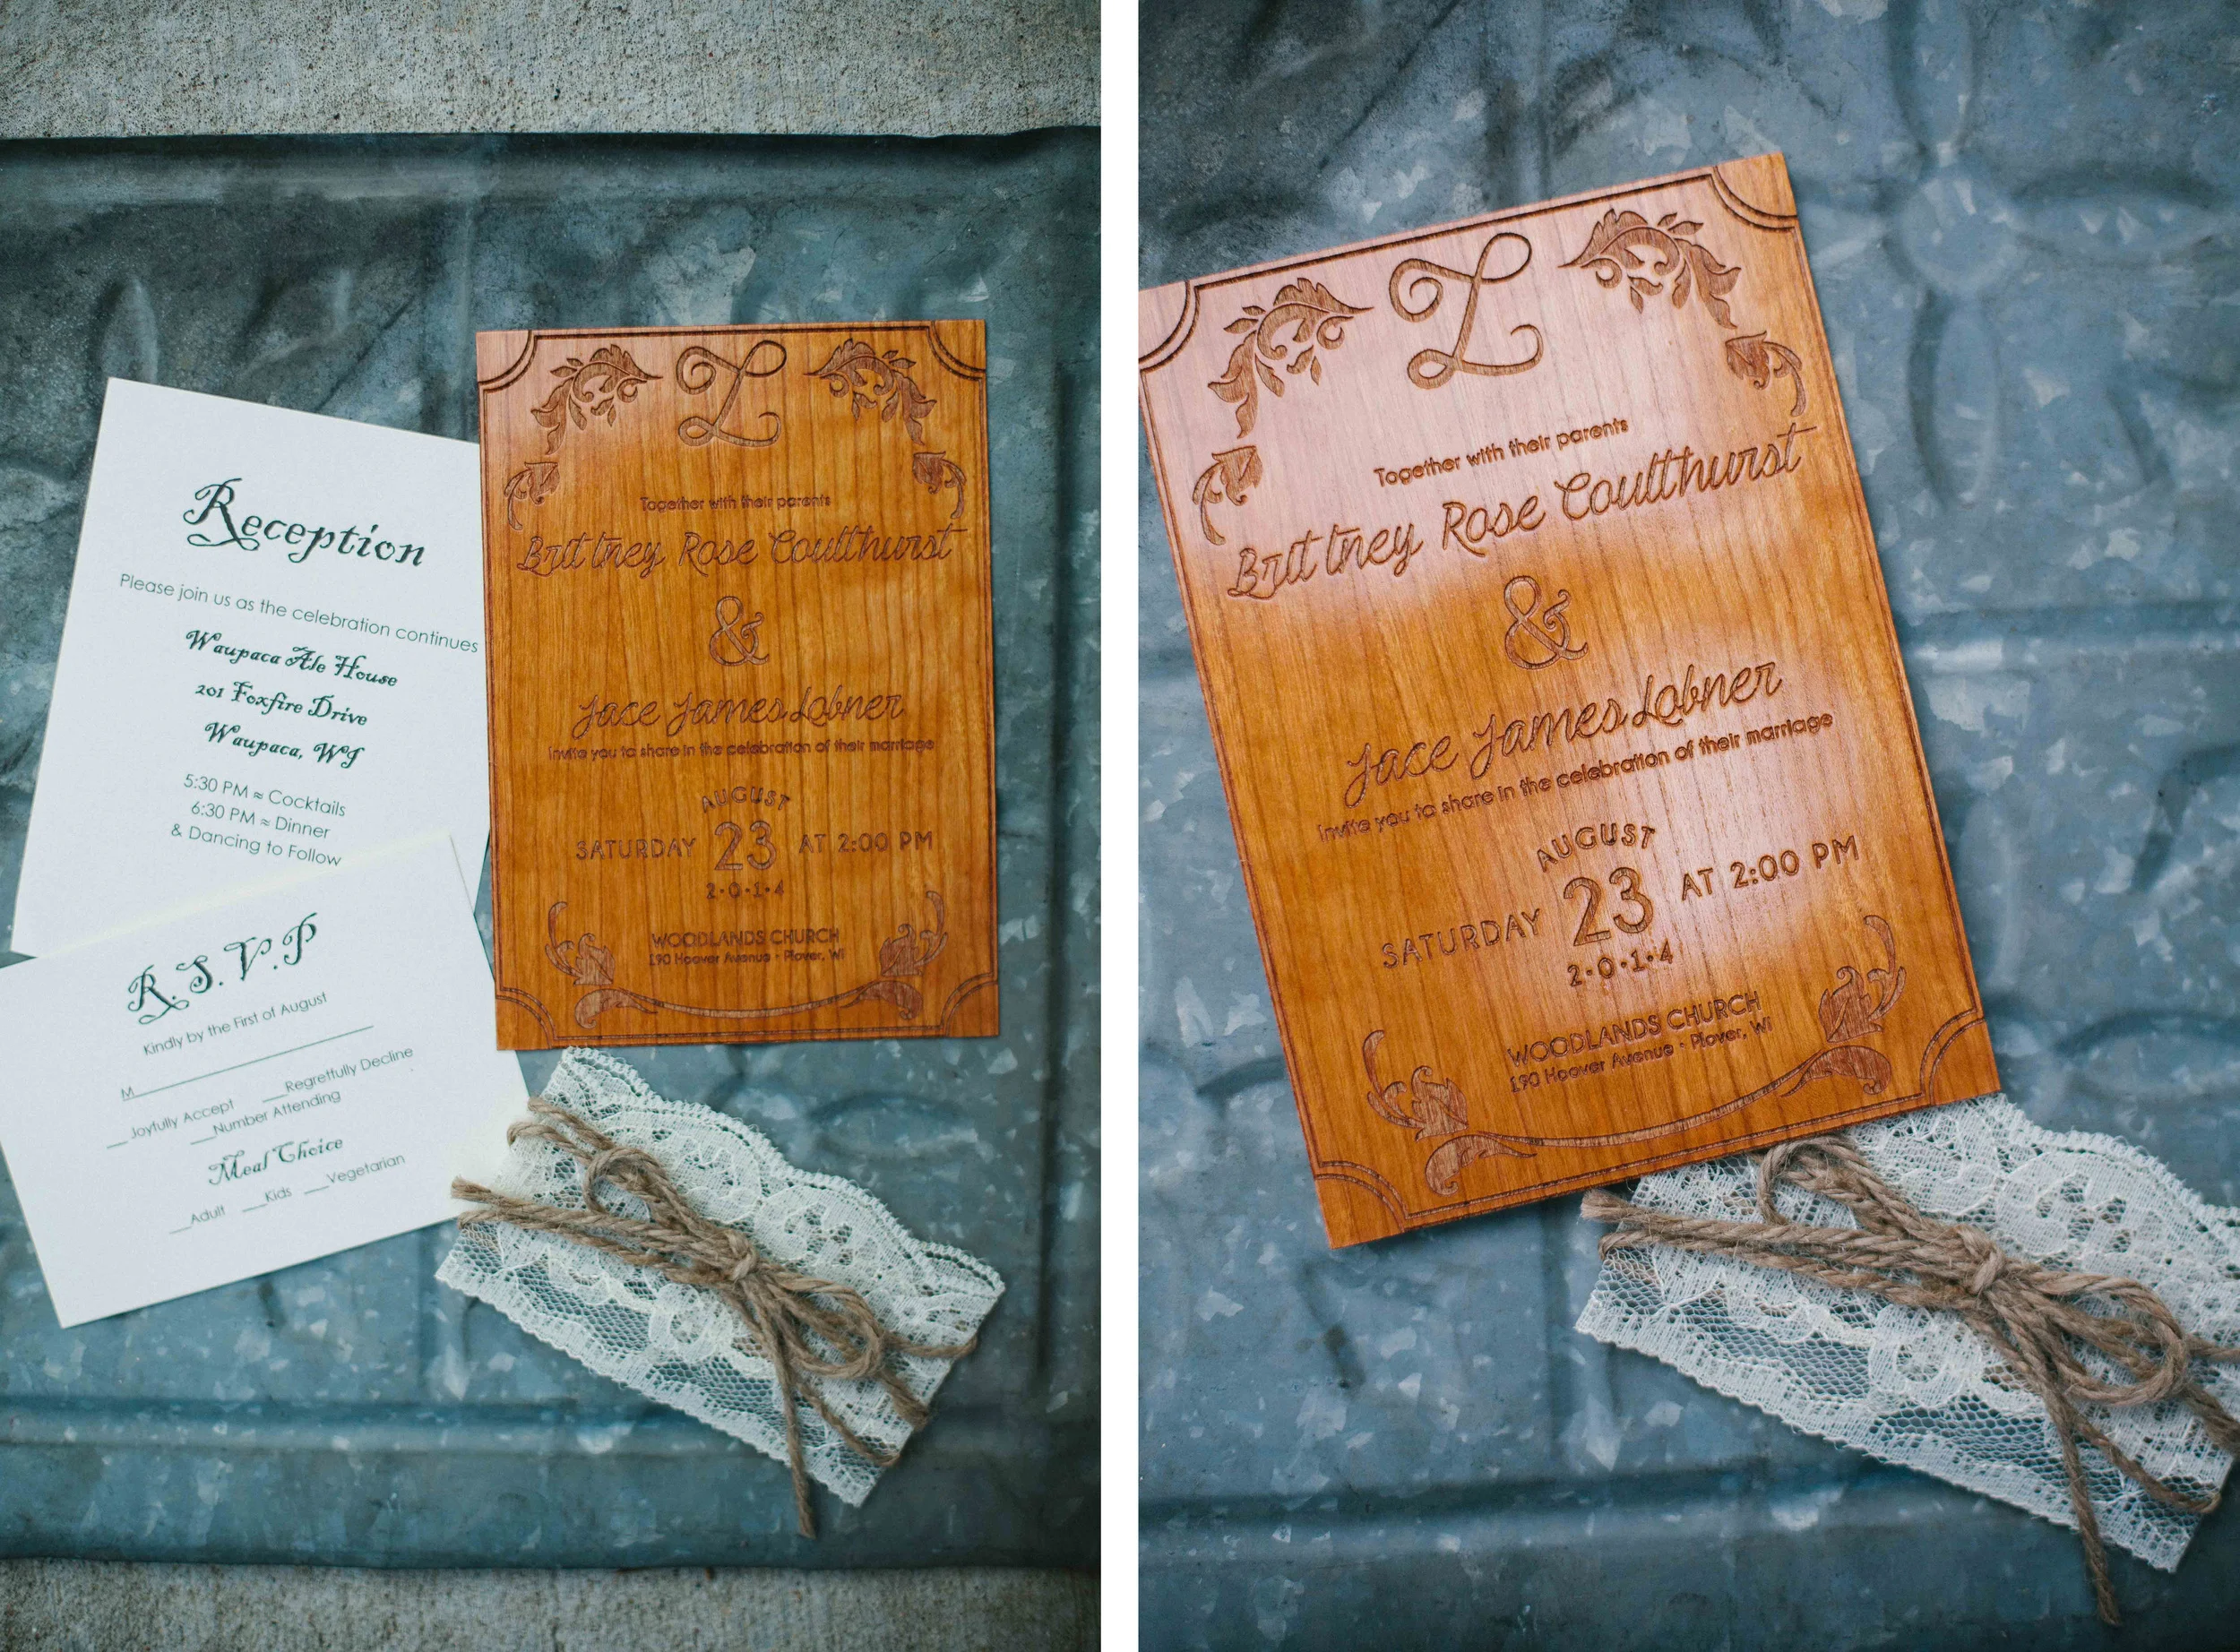 Reception
Please join us as the celebration continues
Waupaca Ale House
201 Foxfire Drive
Waupaca, WI
5:30 PM ≈ Cocktails
6:30 PM ≈ Dinner
& Dancing to Follow
R.S.V.P
Kindly by the First of August
M
__Joyfully Accept __Regretfully Decline
__Number Attending
Meal Choice
__Adult __Kids __Vegetarian
L
Together with their parents
Brittney Rose Coulthurst
&
Jace James Lobner
invite you to share in the celebration of their marriage
AUGUST
SATURDAY 23 AT 2:00 PM
2·0·1·4
WOODLANDS CHURCH
190 Hoover Avenue · Plover, WI
L
Together with their parents
Brittney Rose Coulthurst
&
Jace James Lobner
invite you to share in the celebration of their marriage
AUGUST
SATURDAY 23 AT 2:00 PM
2·0·1·4
WOODLANDS CHURCH
190 Hoover Avenue · Plover, WI